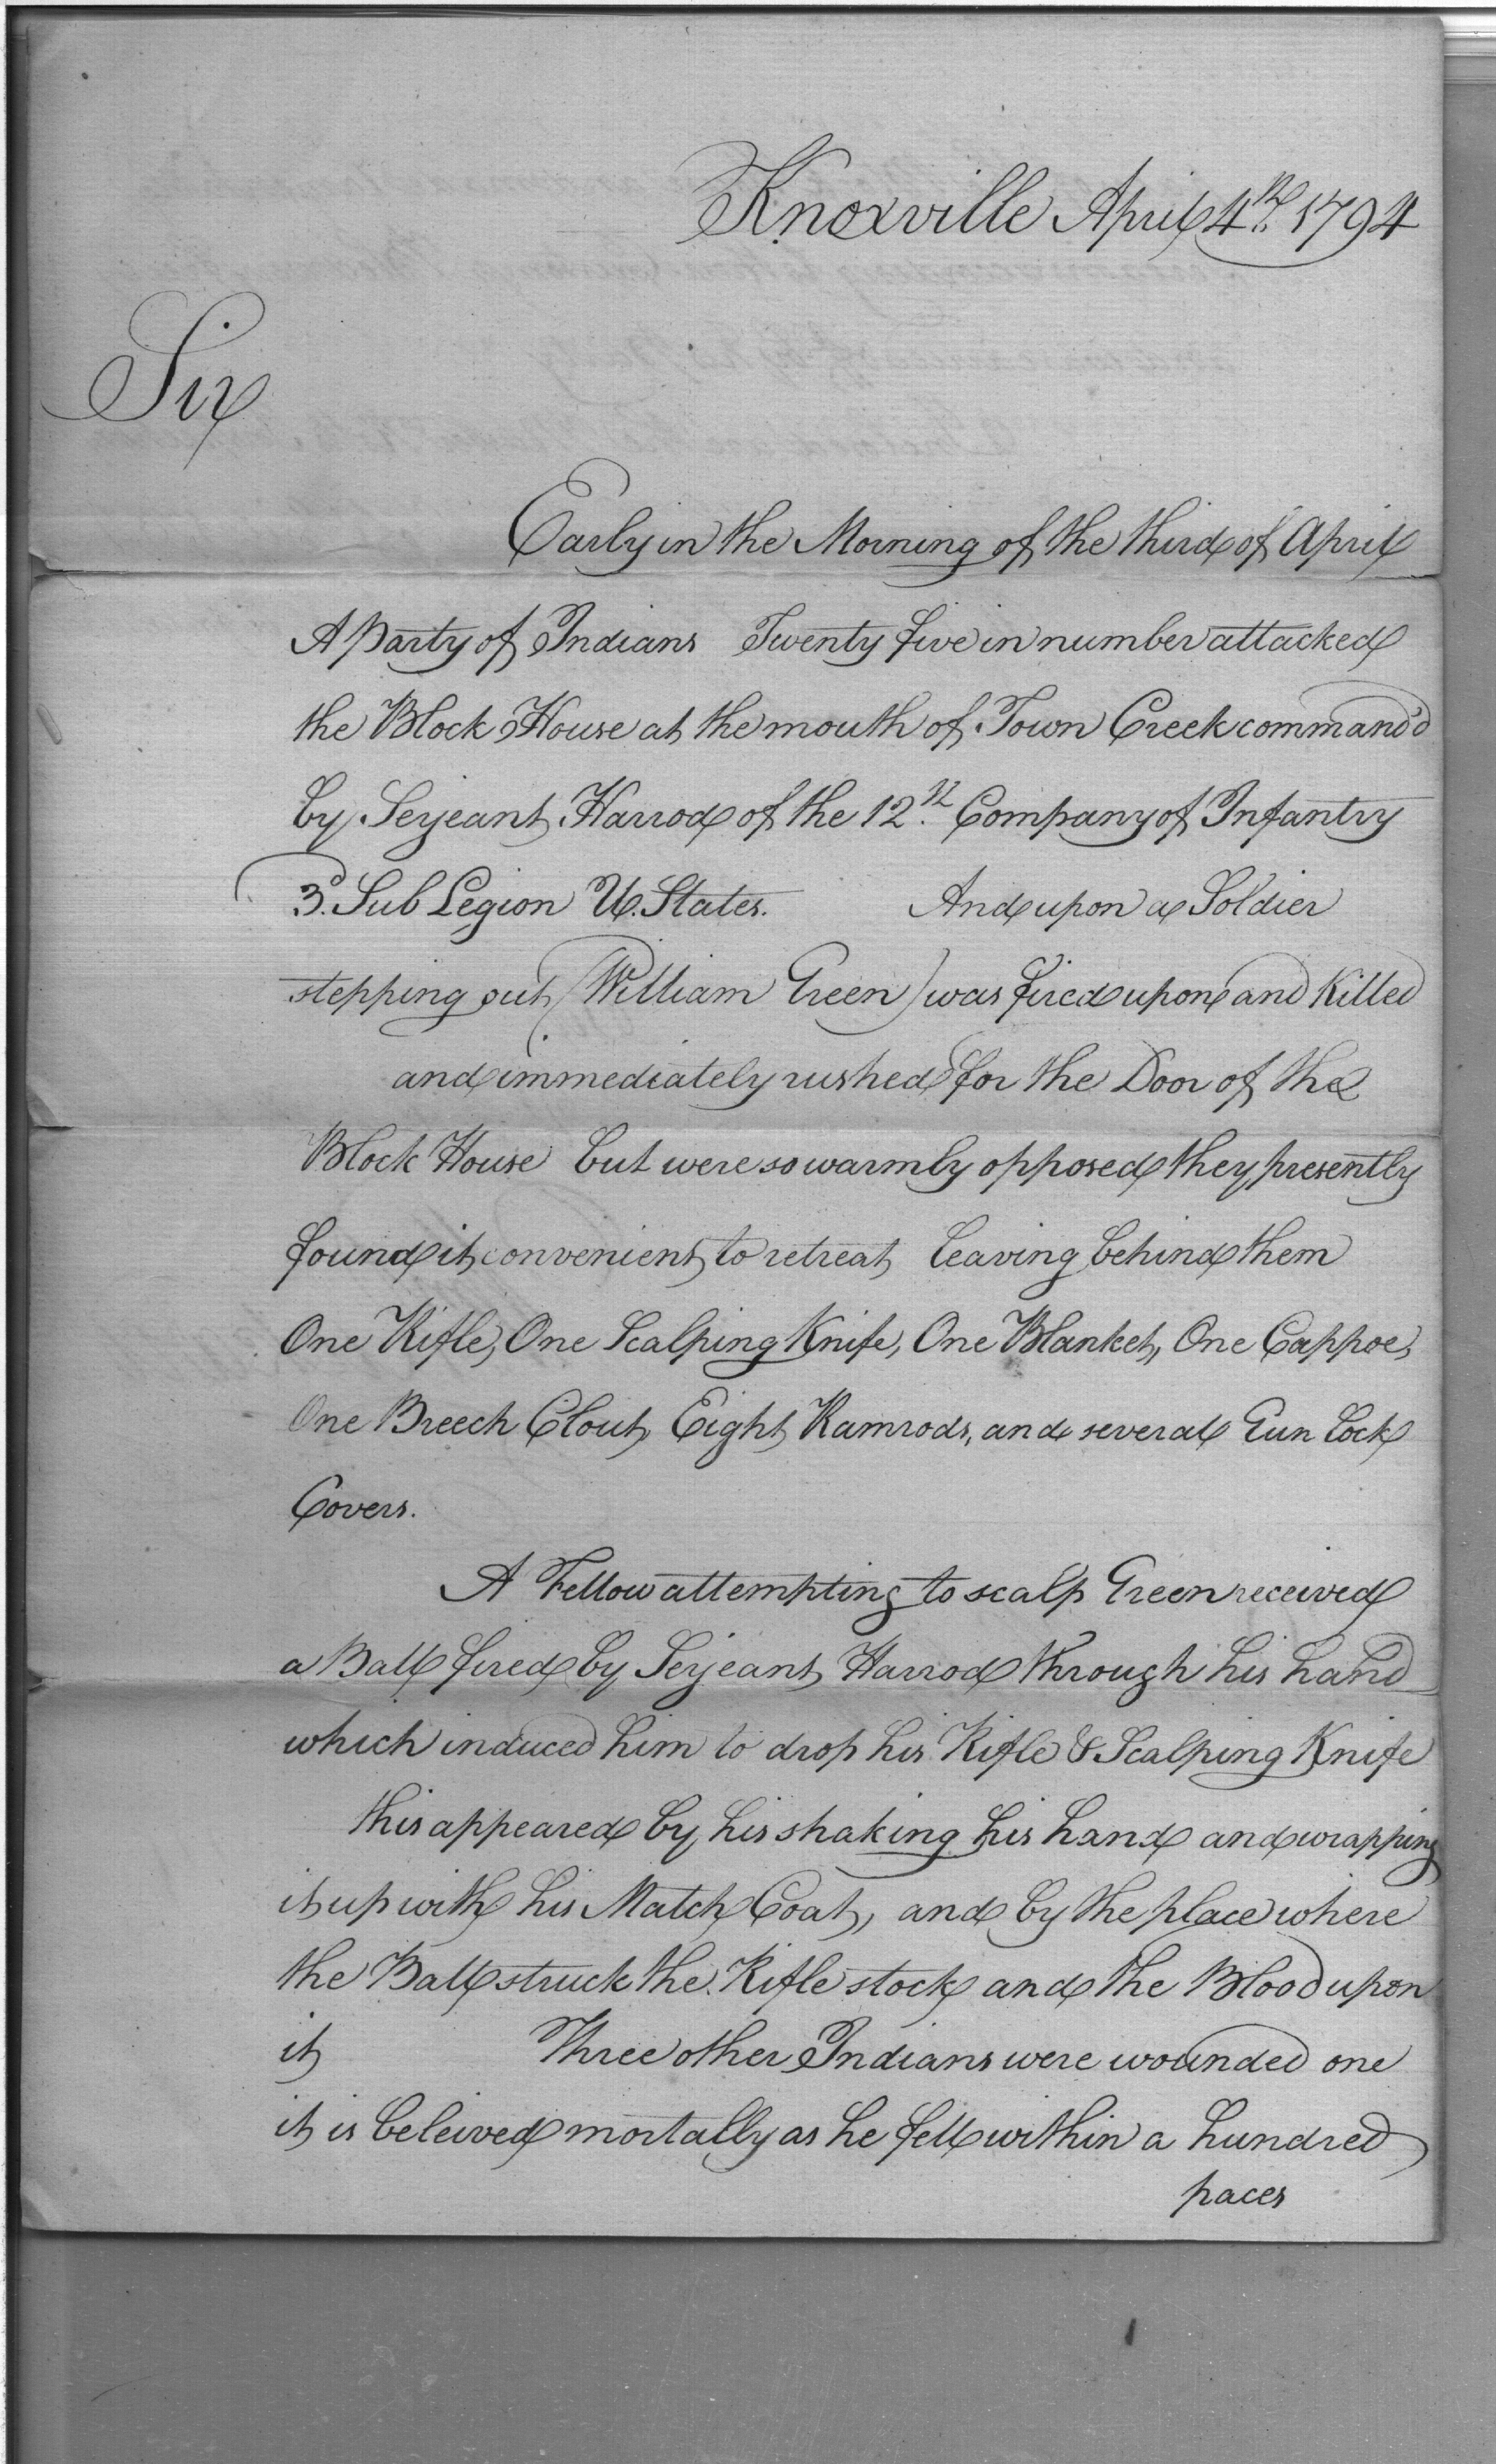 Knoxville April 4th. 1794
Sir
Early in the Morning of the third of April
A Party of Indians Twenty five in number attacked
the Block House at the mouth of Town Creek command'd
by Serjeant Harrod of the 12th. Company of Infantry
3d. Sub Legion U. States. And upon a Soldier
stepping out (William Green) was fired upon and Killed
and immediately rushed for the Door of the
Block House but were so warmly opposed they presently
found it convenient to retreat leaving behind them
One Rifle, One Scalping Knife, One Blanket, One Cappoe,
One Breech Clout, Eight Ramrods, and several Gun Lock
Covers.
A Fellow attempting to scalp Green received
a Ball fired by Serjeant Harrod through his hand
which induced him to drop his Rifle & Scalping Knife
this appeared by his shaking his hand and wrapping
it up with his Match Coat, and by the place where
the Ball struck the Rifle stock and the Blood upon
it Three other Indians were wounded one
it is beleived mortally as he fell within a hundred
paces